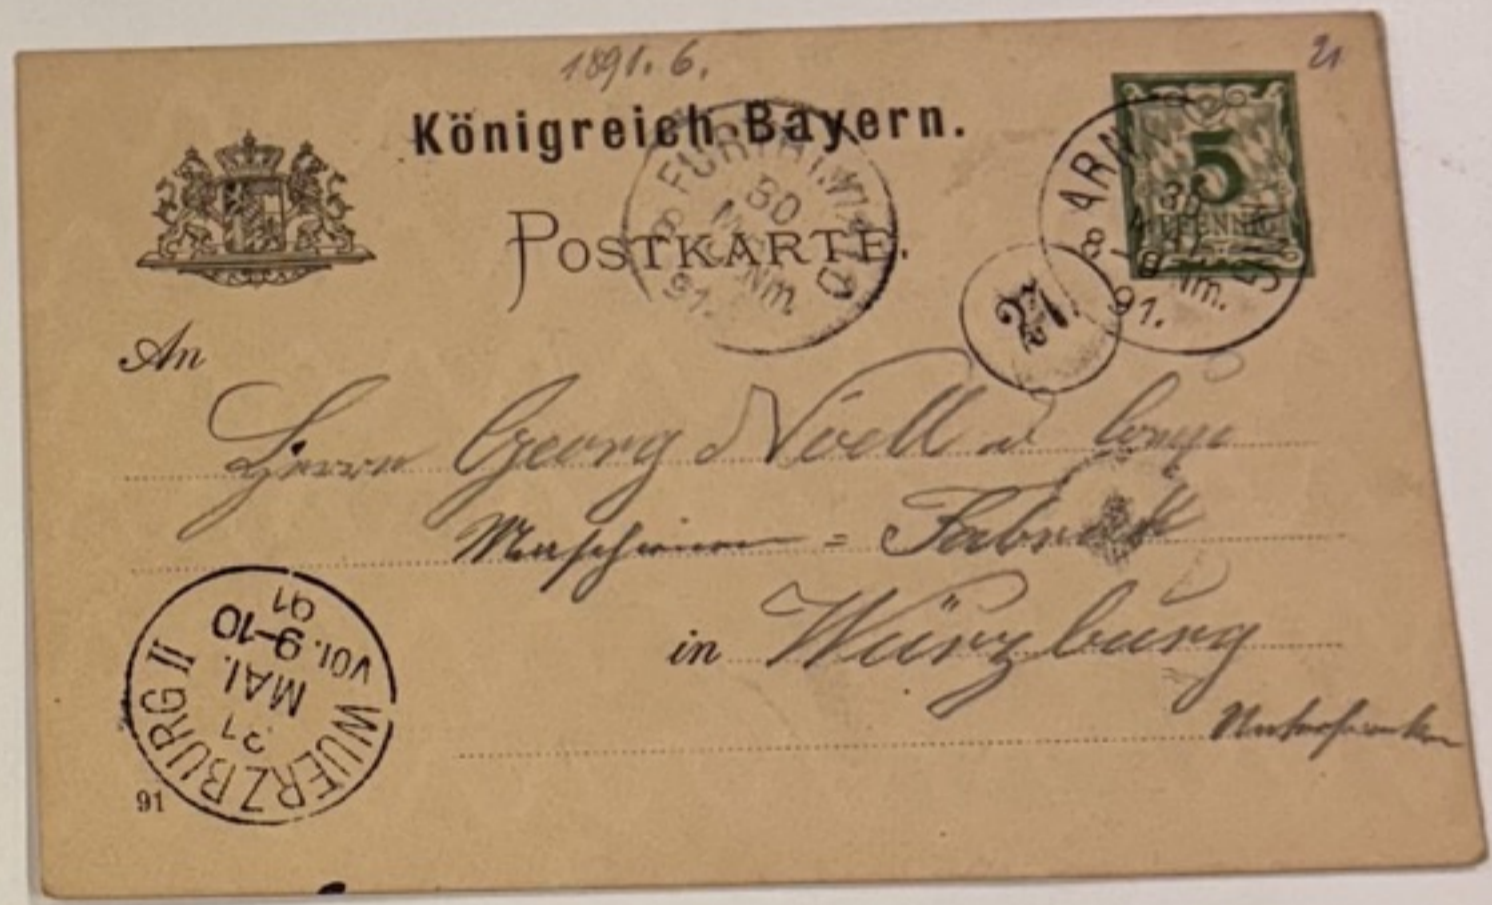 1891. 6.
21
Königreich Bayern.
POSTKARTE.
FURTH I. WALD
30
MAI
Nm.
91.
ARN
5
PFENNIG
30
8-9 Nm.
91.
27
An
Herrn Georg Noell &
Maschinen = Fabrik
in Würzburg
Unterfranken
WUERZBURG II
31
MAI.
VOR. 9-10
91
91